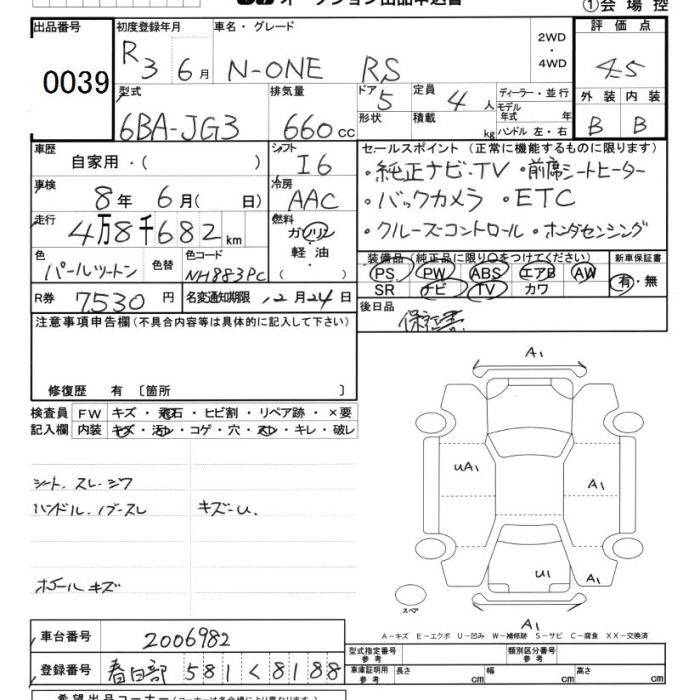 オークション出品申込書
①会場控
出品番号 0039
初度登録年月 R3 6月
車名・グレード N-ONE RS
2WD・4WD
評価点 4.5
型式 6BA-JG3
排気量 660 cc
ドア 5
定員 4人
形状
積載 kg
ディーラー・並行
モデル年式 年
ハンドル 左・右
外装 B
内装 B
車歴 自家用・( )
シフト I6
車検 8年 6月( 日)
冷房 AAC
走行 4万8千682 km
燃料 ガソリン・軽油・( )
セールスポイント(正常に機能するものに限ります)
・純正ナビ・TV ・前席シートヒーター
・バックカメラ ・ETC
・クルーズコントロール ・ホンダセンシング
色 パールツートン
色替
色コード NH883PC
装備品(純正品に限り○をつけてください)
PS PW ABS エアB AW
SR ナビ TV カワ
新車保証書 有・無
R券 7,530円
名変通知期限 12月24日
後日品 保証書
注意事項申告欄(不具合内容等は具体的に記入して下さい)
修復歴 有 〔箇所 〕
検査員記入欄
FW キズ・飛石・ヒビ割・リペア跡・×要
内装 キズ・汚れ・コゲ・穴・スレ・キレ・破レ
シート、スレ・シワ
ハンドル・ノブスレ キズ-U.
ホイールキズ
A1
UA1
A1
U1
A1
A1
スペア
A-キズ E-エクボ U-凹み W-補修跡 S-サビ C-腐食 XX-交換済
車台番号 2006982
登録番号 春日部 581 く 8188
型式指定番号 参考
類別区分番号 参考
車庫証明用 参考 長さ cm 幅 cm 高さ cm
希望出品コーナー